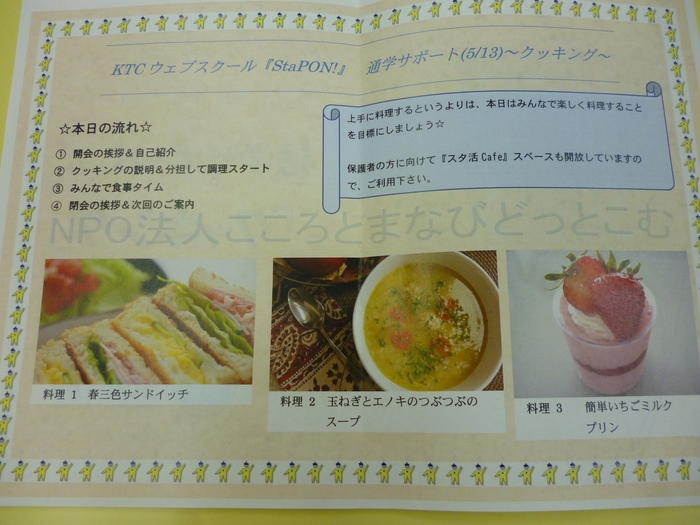 KTCウェブスクール『StaPON!』 通学サポート(5/13)～クッキング～
☆本日の流れ☆
① 開会の挨拶＆自己紹介
② クッキングの説明＆分担して調理スタート
③ みんなで食事タイム
④ 閉会の挨拶＆次回のご案内
上手に料理するというよりは、本日はみんなで楽しく料理すること
を目標にしましょう☆
保護者の方に向けて『スタ活 Cafe』スペースも開放していますの
で、ご利用下さい。
NPO法人こころとまなびどっとこむ
料理 1 春三色サンドイッチ
料理 2 玉ねぎとエノキのつぶつぶの
スープ
料理 3 簡単いちごミルク
プリン